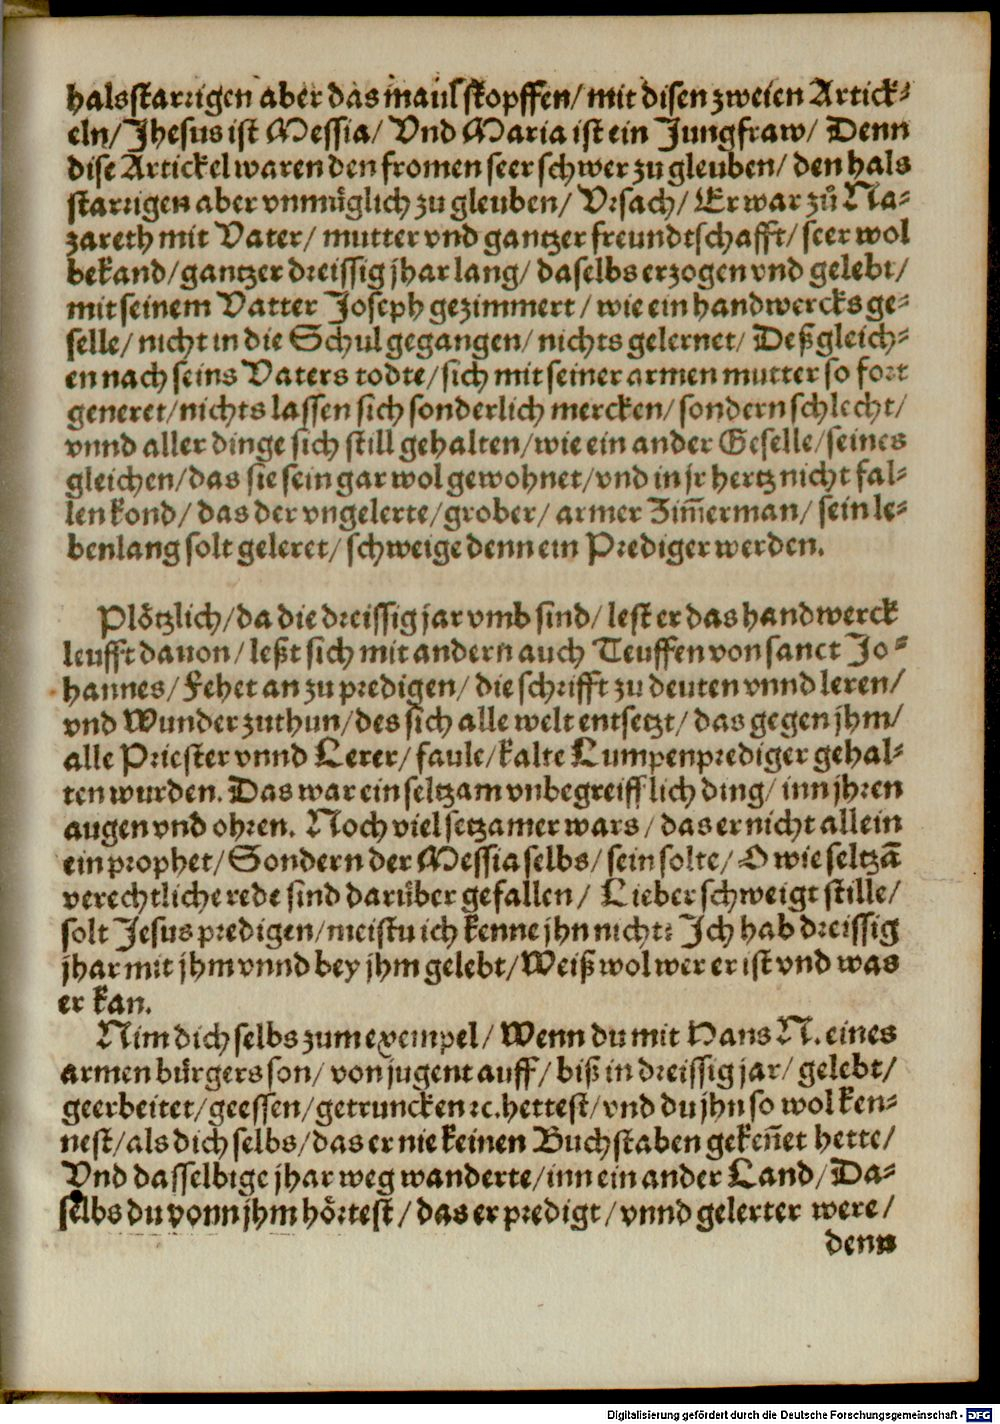 halsstarrigen aber das maul stopffen/ mit disen zweien Artick⸗
eln/ Jhesus ist Messia/ Vnd Maria ist ein Jungfraw/ Denn
dise Artickel waren den fromen seer schwer zu gleuben/ den hals
starrigen aber vnmüglich zu gleuben/ Vrsach/ Er war zů Na⸗
zareth mit Vater/ mutter vnd gantzer freundtschafft/ seer wol
bekand/ gantzer dreissig jhar lang/ daselbs erzogen vnd gelebt/
mit seinem Vatter Joseph gezimmert/ wie ein handwercks ge⸗
selle/ nicht in die Schul gegangen/ nichts gelernet/ Deßgleich⸗
en nach seins Vaters todte/ sich mit seiner armen mutter so fort
generet/ nichts lassen sich sonderlich mercken/ sondern schlecht/
vnnd aller dinge sich still gehalten/ wie ein ander Geselle/ seines
gleichen/ das sie sein gar wol gewohnet/ vnd in jr hertz nicht fal⸗
len kond/ das der vngelerte/ grober/ armer Zim̄erman/ sein le⸗
benlang solt geleret/ schweige denn ein Prediger werden.
Plötzlich/ da die dreissig jar vmb sind/ lest er das handwerck
leufft dauon/ leßt sich mit andern auch Teuffen von sanct Jo⸗
hannes/ Fehet an zu predigen/ die schrifft zu deuten vnnd leren/
vnd Wunder zuthun/ des sich alle welt entsetzt/ das gegen jhm/
alle Priester vnnd Lerer/ faule/ kalte Lumpenprediger gehal⸗
ten wurden. Das war ein seltzam vnbegreifflich ding/ inn jhren
augen vnd ohren. Noch viel setzamer wars/ das er nicht allein
ein prophet/ Sondern der Messia selbs/ sein solte/ O wie seltzā
verechtliche rede sind darüber gefallen/ Lieber schweigt stille/
solt Jesus predigen/ meistu ich kenne jhn nicht? Ich hab dreissig
jhar mit jhm vnnd bey jhm gelebt/ Weiß wol wer er ist vnd was
er kan.
Nim dich selbs zum exempel/ Wenn du mit Hans N. eines
armen bürgers son/ von jugent auff/ biß in dreissig jar/ gelebt/
geerbeitet/ geessen/ getruncken ꝛc. hettest/ vnd du jhn so wol ken⸗
nest/ als dich selbs/ das er nie keinen Buchstaben geken̄et hette/
Vnd dasselbige jhar weg wanderte/ inn ein ander Land/ Da⸗
selbs du vonn jhm hörtest/ das er predigt/ vnnd gelerter were/
denn
Digitalisierung gefördert durch die Deutsche Forschungsgemeinschaft - DFG